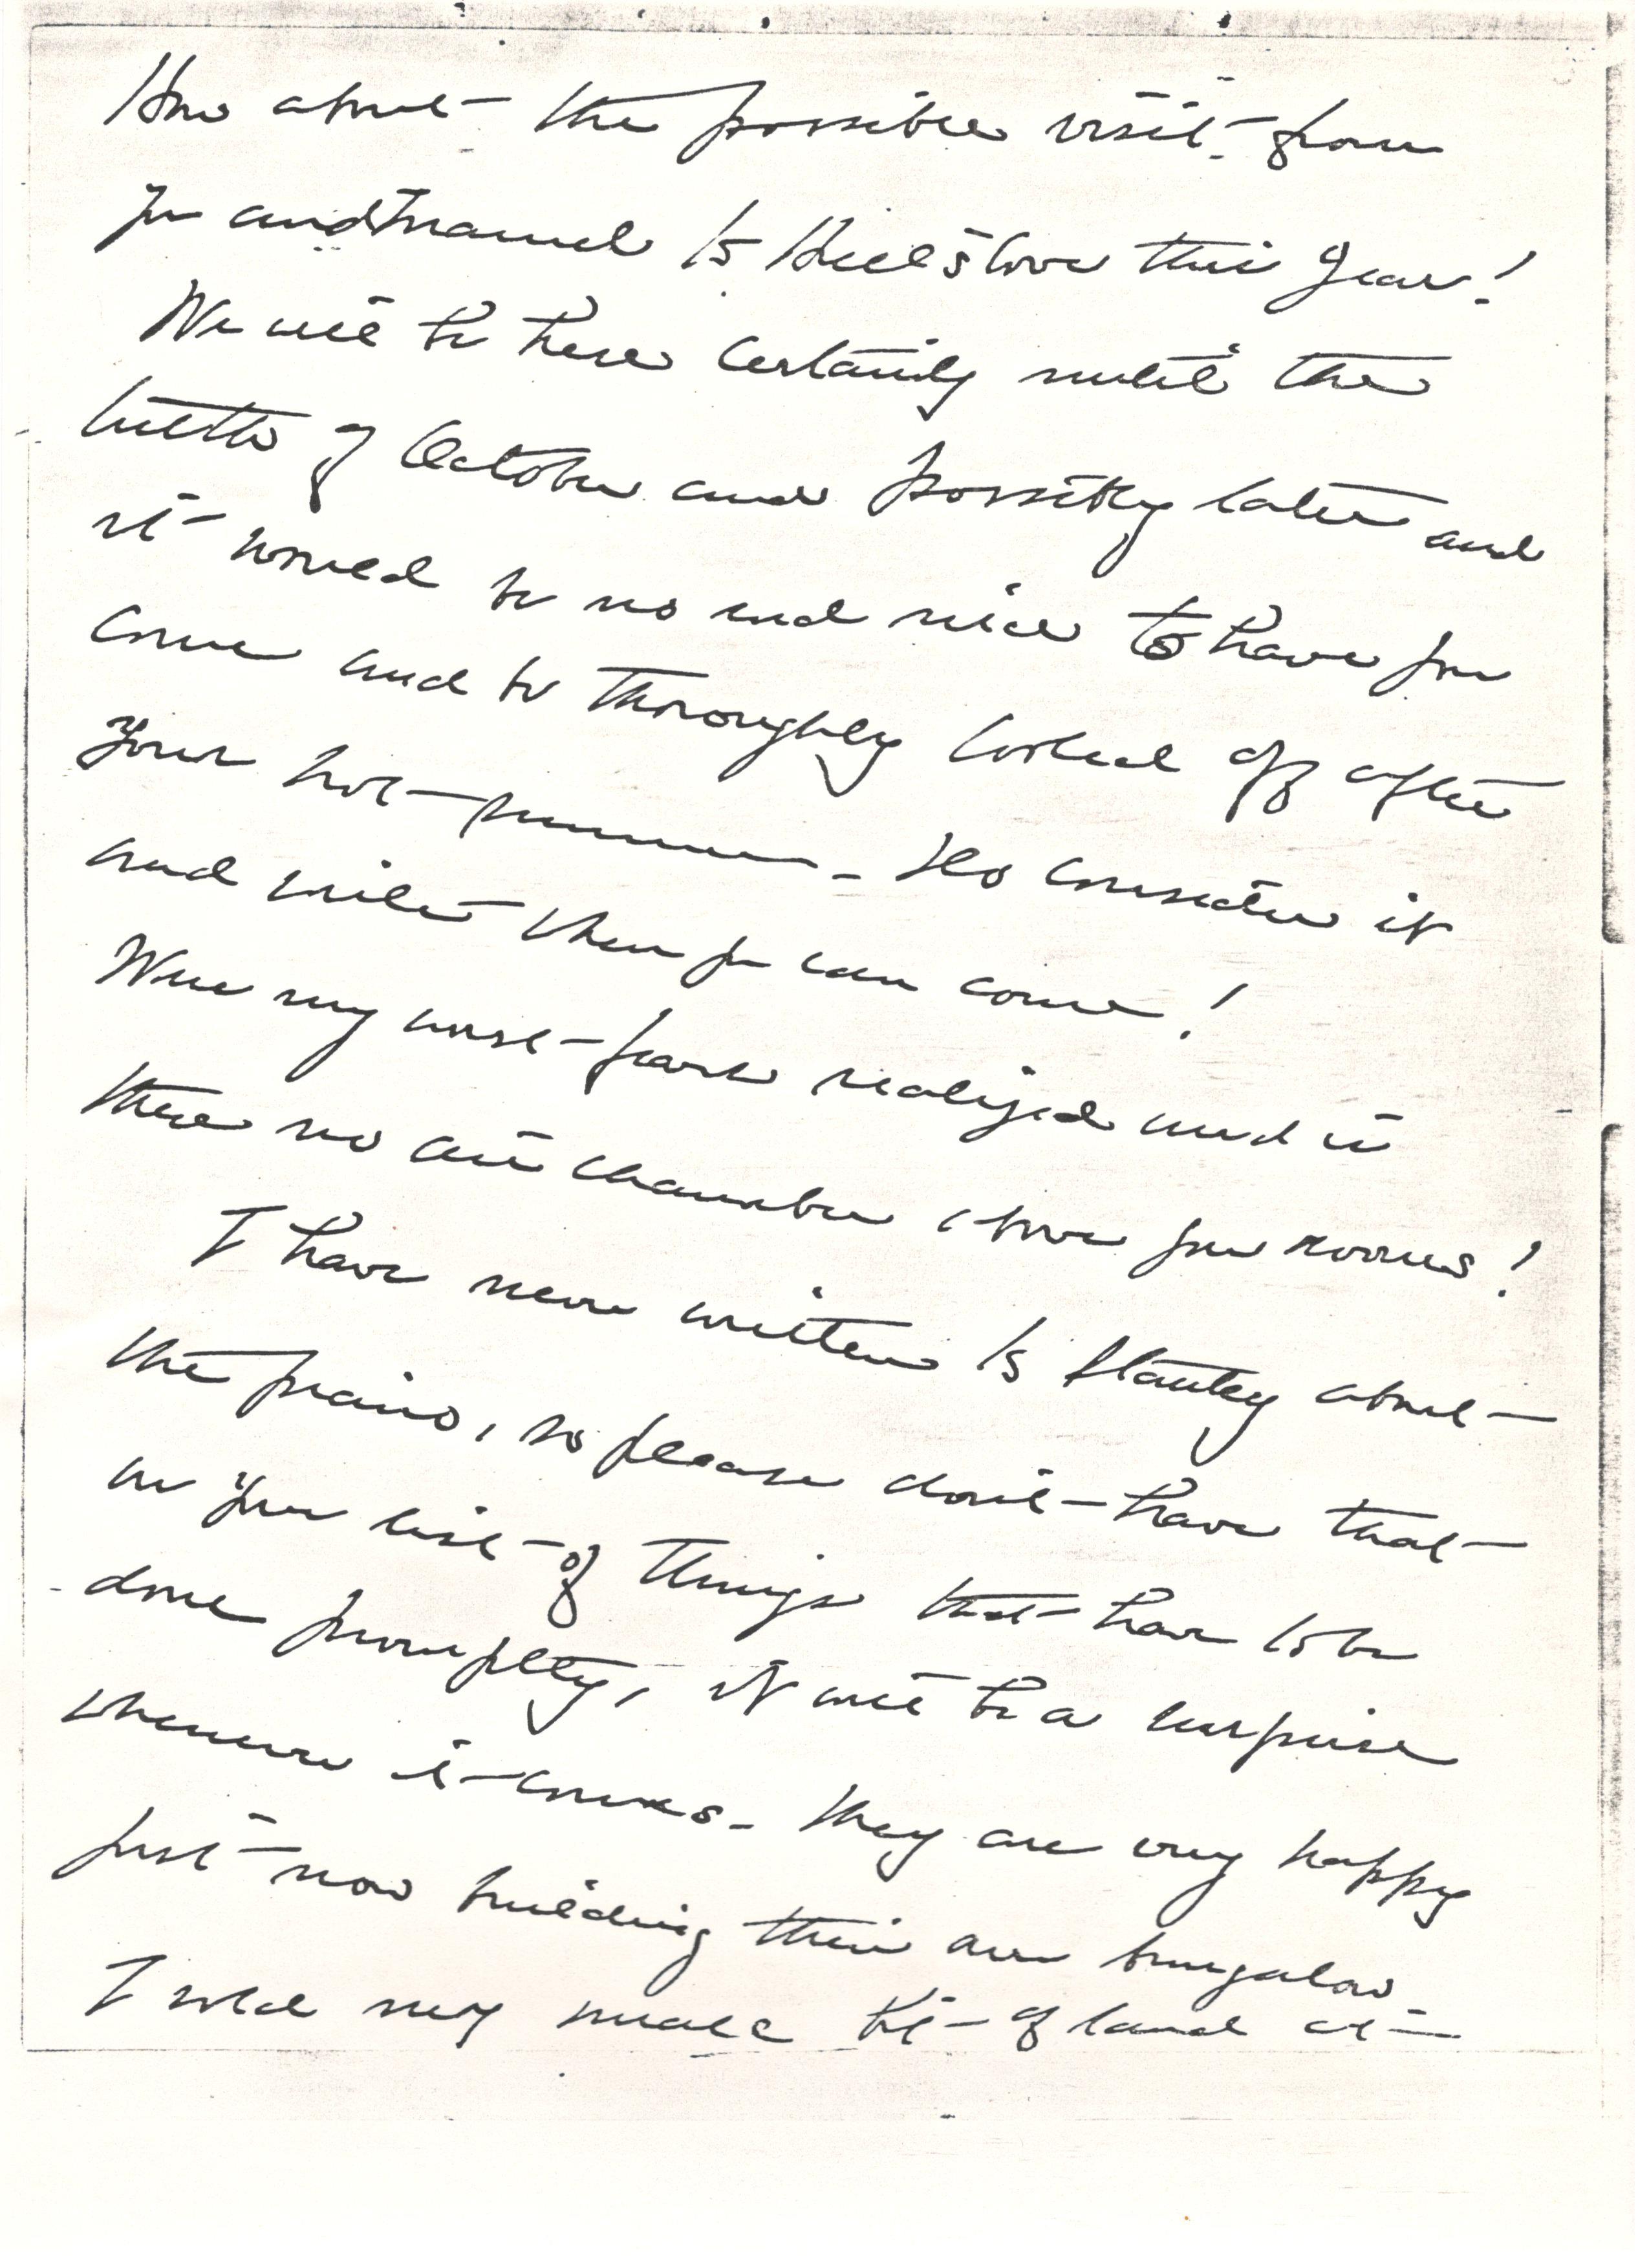 How about the possible visit from
you and to Hillstone this year!
We will be here certainly until the
of October and possibly later and
it would be no end nice to have you
come and be thoroughly cooled off after
your hot summer. Do consider it
and write when you can come!
Were my worst fears realized and is
there no air chamber above your rooms!
I have never written to Stanley about
the piano, so please don't have that
on your list of things that have to be
done promptly, it will be a surprise
whenever it comes. They are very happy
just now building their own bungalow.
I sold my small bit of land at